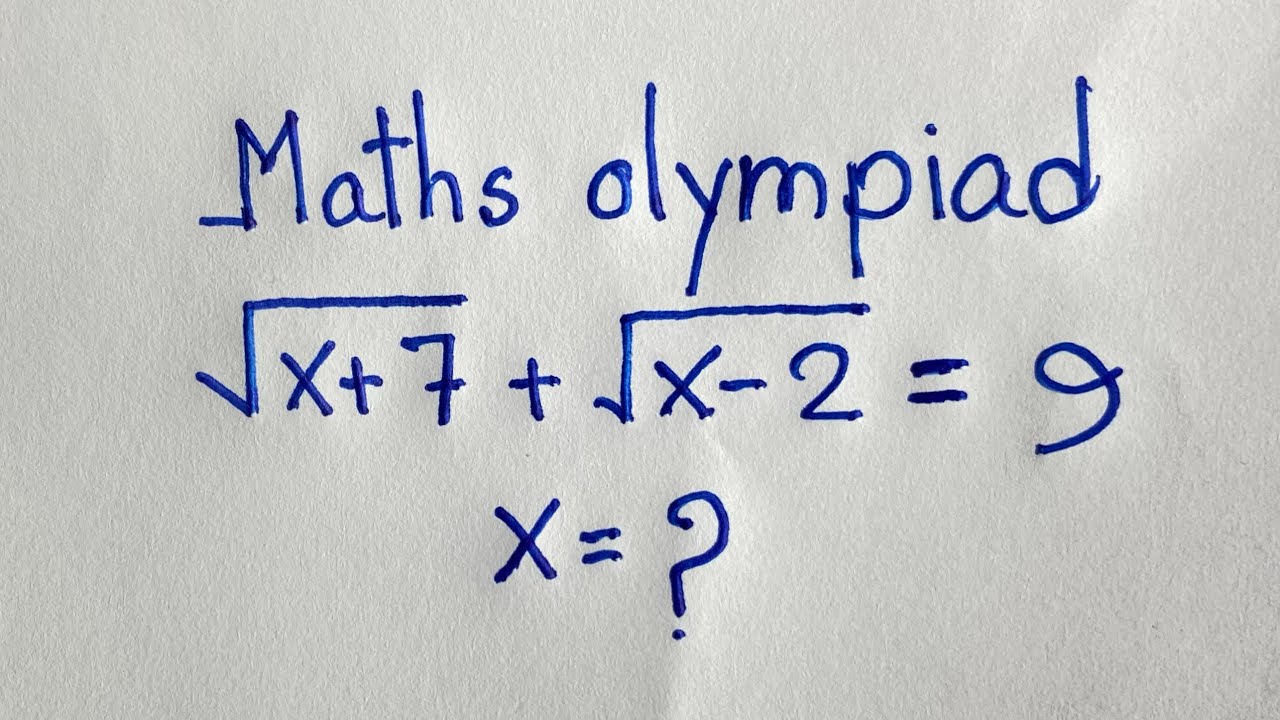 Maths olympiad
√x+7 + √x-2 = 9
x = ?